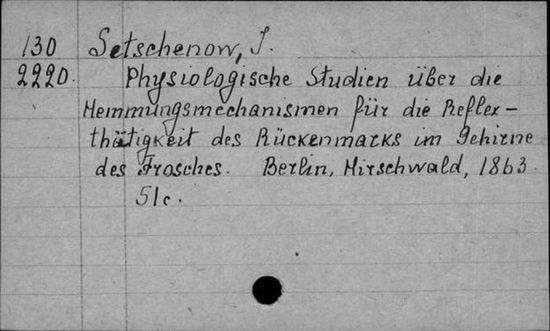 130 Setschenow, I.
2220. Physiologische Studien über die
Hemmungsmechanismen für die Reflex-
thätigkeit des Rückenmarks im Gehirne
des Frosches. Berlin, Hirschwald, 1863.
51c.